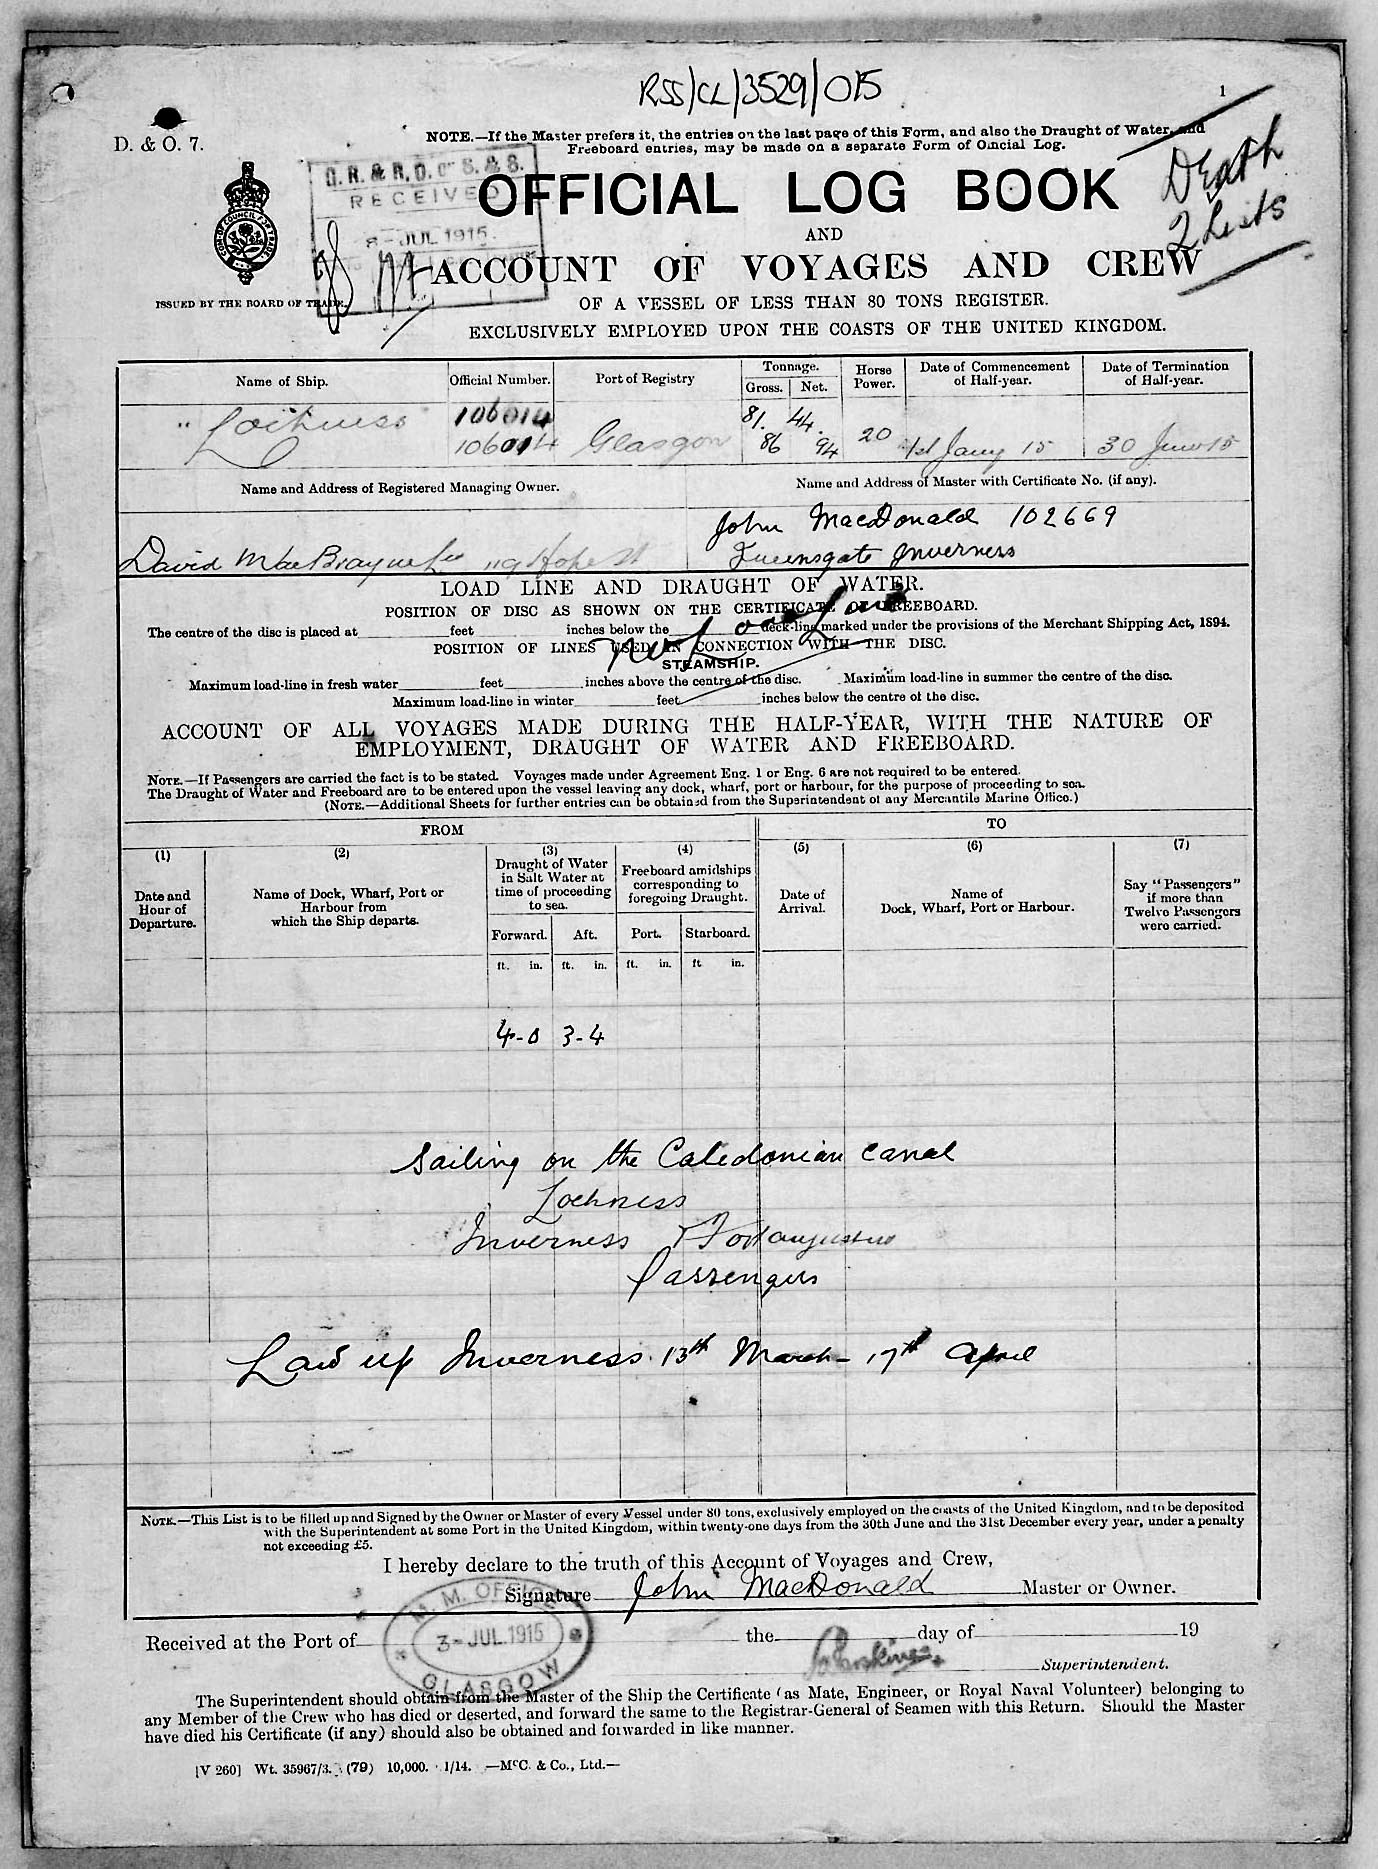 RSS/CL/3529/015
1
D. & O. 7.
NOTE.—If the Master prefers it, the entries on the last page of this Form, and also the Draught of Water, and
Freeboard entries, may be made on a separate Form of Official Log.
Death
2 Lists
RECEIVED
8-JUL 1915
OFFICIAL LOG BOOK
AND
ACCOUNT OF VOYAGES AND CREW
ISSUED BY THE BOARD OF TRADE.
OF A VESSEL OF LESS THAN 80 TONS REGISTER.
EXCLUSIVELY EMPLOYED UPON THE COASTS OF THE UNITED KINGDOM.
Name of Ship. Official Number. Port of Registry Tonnage. Gross. Net. Horse Power. Date of Commencement of Half-year. Date of Termination of Half-year.
"Lochness 106014 81. 44.
106014 Glasgow 86 94 20 1st Jany 15 30 June 15
Name and Address of Registered Managing Owner. Name and Address of Master with Certificate No. (if any).
John MacDonald 102669
David MacBrayne Ltd 119 Hope St Queensgate Inverness
LOAD LINE AND DRAUGHT OF WATER.
POSITION OF DISC AS SHOWN ON THE CERTIFICATE OF FREEBOARD.
The centre of the disc is placed at feet inches below the deck-line marked under the provisions of the Merchant Shipping Act, 1894.
no Load Line
POSITION OF LINES USED IN CONNECTION WITH THE DISC.
STEAMSHIP.
Maximum load-line in fresh water feet inches above the centre of the disc. Maximum load-line in summer the centre of the disc.
Maximum load-line in winter feet inches below the centre of the disc.
ACCOUNT OF ALL VOYAGES MADE DURING THE HALF-YEAR, WITH THE NATURE OF
EMPLOYMENT, DRAUGHT OF WATER AND FREEBOARD.
NOTE.—If Passengers are carried the fact is to be stated. Voyages made under Agreement Eng. 1 or Eng. 6 are not required to be entered.
The Draught of Water and Freeboard are to be entered upon the vessel leaving any dock, wharf, port or harbour, for the purpose of proceeding to sea.
(NOTE.—Additional Sheets for further entries can be obtained from the Superintendent of any Mercantile Marine Office.)
FROM TO
(1) (2) (3) (4) (5) (6) (7)
Date and Hour of Departure. Name of Dock, Wharf, Port or Harbour from which the Ship departs. Draught of Water in Salt Water at time of proceeding to sea. Freeboard amidships corresponding to foregoing Draught. Date of Arrival. Name of Dock, Wharf, Port or Harbour. Say "Passengers" if more than Twelve Passengers were carried.
Forward. Aft. Port. Starboard.
ft. in. ft. in. ft. in. ft. in.
4-0 3-4
Sailing on the Caledonian canal
Lochness
Inverness & Fortaugustus
Passengers
Laid up Inverness 13th March - 17th April
NOTE.—This List is to be filled up and Signed by the Owner or Master of every Vessel under 80 tons, exclusively employed on the coasts of the United Kingdom, and to be deposited
with the Superintendent at some Port in the United Kingdom, within twenty-one days from the 30th June and the 31st December every year, under a penalty
not exceeding £5.
I hereby declare to the truth of this Account of Voyages and Crew,
Signature John MacDonald Master or Owner.
M. M. OFFICE
3-JUL.1915
GLASGOW
Received at the Port of the day of 19
Superintendent.
The Superintendent should obtain from the Master of the Ship the Certificate (as Mate, Engineer, or Royal Naval Volunteer) belonging to
any Member of the Crew who has died or deserted, and forward the same to the Registrar-General of Seamen with this Return. Should the Master
have died his Certificate (if any) should also be obtained and forwarded in like manner.
[V 260] Wt. 35967/3. (79) 10,000. 1/14. —McC. & Co., Ltd.—